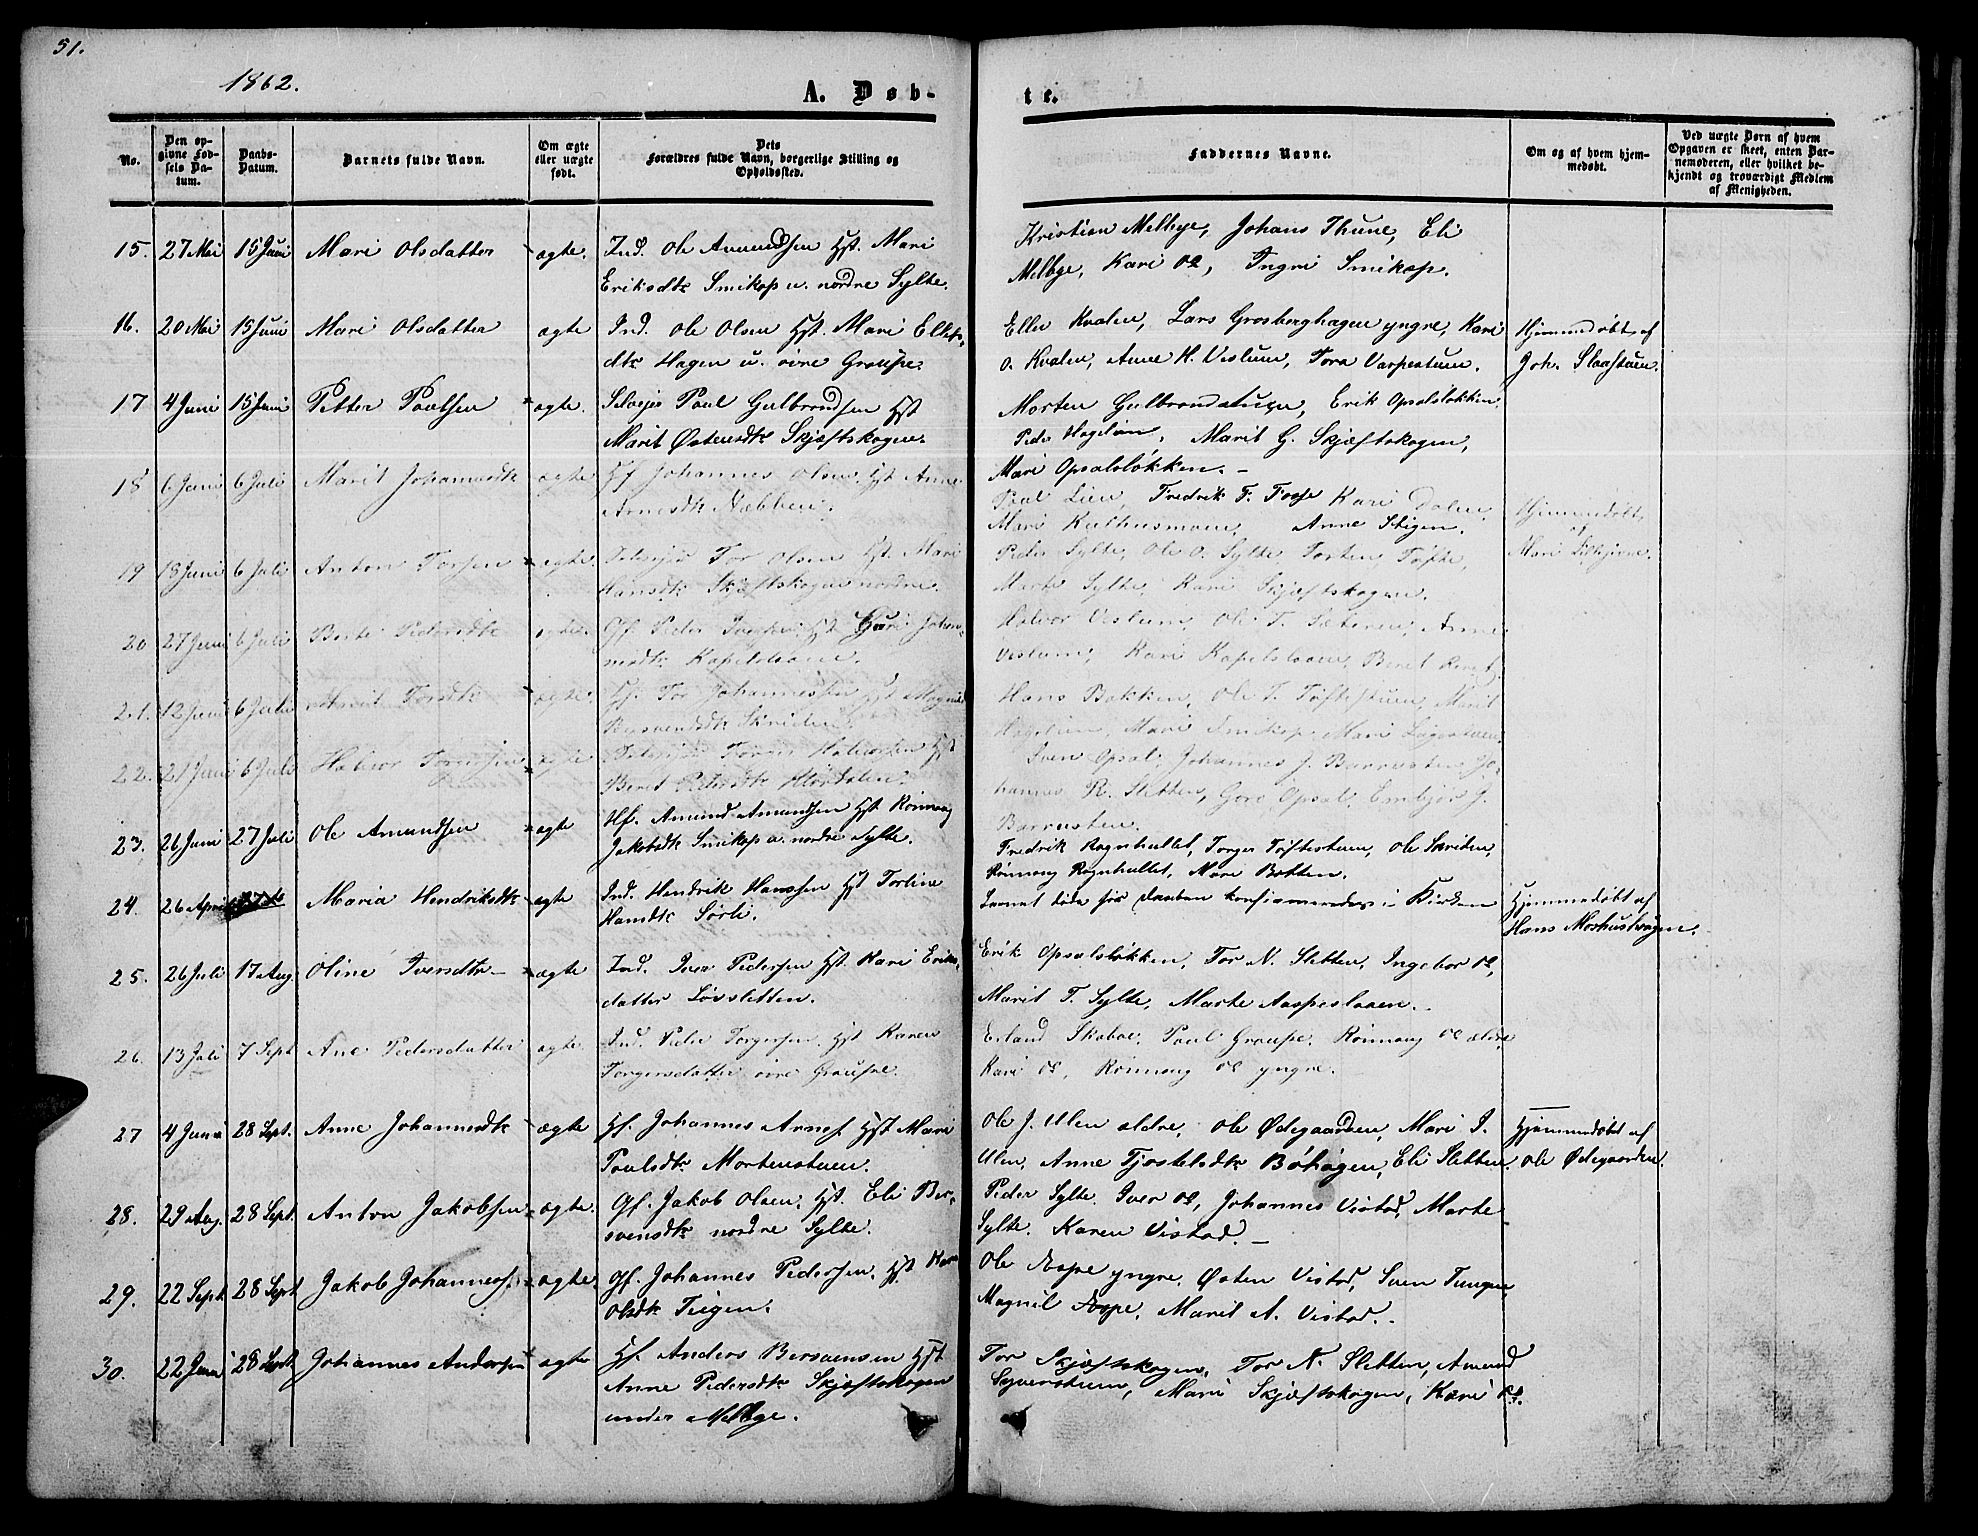 51.
1862.
A. Døb-
te.
No.
Den op-
givne Fød-
sels Da-
tum.
Daabs-
Datum.
Barnets fulde Navn.
Om ægte
eller uægte
født.
Dets
Forældres fulde Navn, borgerlige Stilling og
Opholdssted.
Faddernes Navne.
Om og af hvem hjem-
medøbt.
Ved uægte Børn af hvem
Opgaven er skeet, enten Bar-
nemoderen, eller hvilket be-
kjendt og troværdigt Medlem
af Menigheden.
15. 27 Mai 15 Juni Mari Olsdatter ægte. Ind. Ole Amundsen Hst. Mari
Eriksdtr Smikop u. nordre Sylte.
Kristian Melbye, Johans Thune, Eli
Melbye, Kari do, Ingri Smikop.
16. 20 Mai 15 Juni Mari Olsdatter ægte Ind. Ole Olsen Hst. Mari Ellefs-
dtr Hagen u. øvre Graupe.
Ellev Kvalen, Lars Grosberghagen yngre, Kari
O. Kvalen, Anne H. Veslum, Tora Varpestuen.
Hjemmedøbt af
Joh. Slaastuen.
17 4 Juni 15 Juni Petter Paulsen ægte. Selvejer Paul Gulbrandsen Hst
Marit Østensdtr Skjæftskogen.
Morten Gulbrandstuen, Erik Opsalsløkken
Peder Hagelien, Marit G. Skjæftskogen,
Mari Opsalsløkken. -
18 6 Juni 6 Juli Marit Johannesdtr ægte Hf Johannes Olsen Hst Anne
Arnesdtr Næbben.
Paul Lien, Fredrik F. Fosse Kari Dalen,
Mari Kulhusmoen, Anne Stigen.
Hjemmedøbt
af
Mari
19 18 Juni 6 Juli Anton Torsen ægte. Selvejer Tor Olsen Hst. Mari
Hansdtr Skjæftskogen nordre.
Peder Sylte, Ole O. Sylte, Torsten Tøfte,
Marte Sylte, Kari Skjæftskogen.
20 27 Juni 6 Juli Berte Pedersdtr ægte. Gf. Peder Iversen Hst Guri Johan-
nesdtr Kapelslaaen.
Halvor Veslum, Ole T. Sæteren, Anne
Veslum, Kari Kapelslaaen, Beret
21. 12 Juni 6 Juli Marit Torsdtr ægte. Hf. Tor Johannessen Hst Magnild
Bersvensdtr Skriden.
Hans Bakken, Ole T. Tøftestuen, Marit
Hagelien, Mari Smikop, Mari
22. 21 Juni 6 Juli Halvor ægte Selvejer Halvorsen Hst
Beret Pedersdtr
Iver Opsal, Johannes J. Barrusten, Jo-
hannes R. Sletten, Goro Opsal, Embjør J.
Barrusten.
23. 26 Juni 27 Juli Ole Amundsen ægte Hf. Amund Amundsen Hst Rønnaug
Jakobsdtr Smikop u. nordre Sylte.
Fredrik Rognhullet, Torger Tøftestuen, Ole Skriden,
Rønnaug Rognhullet, Mari Botten.
24. 26 April Maria Hendriksdtr ægte Ind. Hendrik Hanssen Hst Torline
Hansdtr Sørli.
Barnet døde før Daaben konfirmeredes i Kirken
Hjemmedøbt af
Hans
25. 26 Juli 17 Aug. Oline Iversdtr ægte Ind. Iver Pedersen Hst. Kari Eriks-
datter Løvsletten.
Erik Opsalsløkken, Tor N. Sletten, Ingebor do,
Marit T. Sylte, Marte Aaspeslaaen.
26. 13 Juli 7 Sept Ane Pedersdatter ægte. Ind. Peder Torgersen, Hst Karen
Torgersdatter øvre Graupe.
Erland Skaboe, Paul Graupe, Rønnaug do ældre
Kari do, Rønnaug do yngre.
27 4 Juni 28 Sept. Anne Johannesdtr ægte Hf. Johannes Arnes. Hst Mari
Paulsdtr Mortenstuen.
Ole J. Ulen ældre, Ole Ødegaarden, Mari J.
Ulen, Anne Tjostelsdtr Bøhagen, Eli Sletten
Hjemmedøbt af
Ole Ødegaarden.
28. 29 Aug. 28 Sept. Anton Jakobsen ægte. Gf. Jakob Olsen, Hst. Eli Ber-
svensdtr nordre Sylte.
Peder Sylte, Iver do, Johannes Vistad, Marte
Sylte, Karen Vistad. -
29. 22 Sept 28 Sept Jakob Johannes. ægte. Gf. Johannes Pedersen. Hst Kari
Olsdtr Teigen.
Ole Aaspe yngre, Østen Vistad, Sven Tungen
Magnil Aaspe, Marit A. Vistad.
30. 22 Juni 28 Sept Johannes Andersen ægte Hf. Anders Bersvensen Hst
Anne Pedersdtr Skjæftskogen
under Melbye.
Tor Skjæftskogen, Tor N. Sletten, Amund
Syverstuen, Mari Skjæftskogen, Kari do.